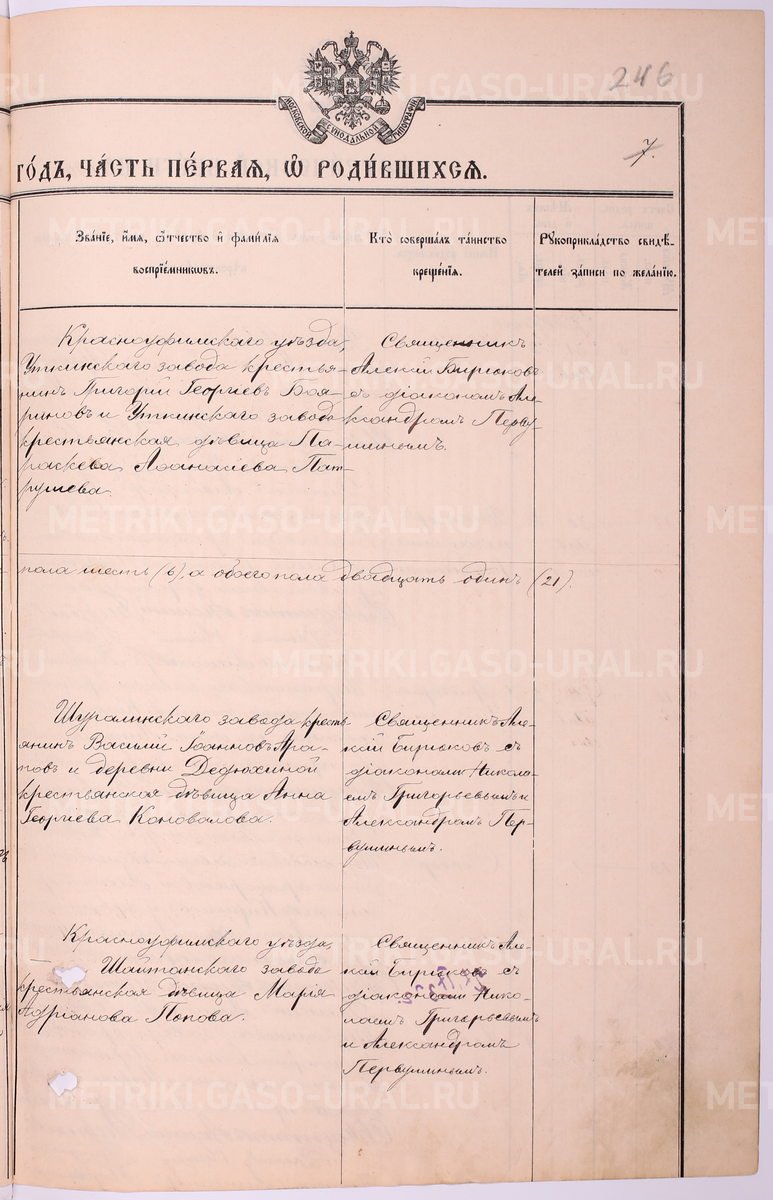 246
МОСКОВСКОЙ СѴНОДАЛЬНОЙ ТИПОГРАФІИ
ГО́ДЪ, ЧА́СТЬ ПЕ́РВАЯ, Ѽ РОДИ́ВШИХСЯ.
7.
Зва́ніе, и́мя, ѻ҆́тчество и҆ фами́лія
воспріе́мниковъ.
Кто̀ соверша́лъ та́инство
креще́нія.
Рукоприкла́дство свидѣ́-
телей за́писи по жела́нію.
Красноуфимскаго уѣзда,
Уткинскаго завода крестья-
нинъ Григорій Георгіевъ Боя-
риновъ и Уткинскаго завода
крестьянская дѣвица Па-
раскева Аѳанасіева Пат-
рушева.
Священникъ
Алексій Бирюковъ
съ діакономъ Але-
ксандромъ Перву-
шинымъ.
пола шесть (6), а обоего пола двадцать одинъ (21).
Шуралинскаго завода кресть-
янинъ Василій Іоанновъ Ара-
повъ и деревни Дедюхиной
крестьянская дѣвица Анна
Георгіева Коновалова.
Священникъ Але-
ксій Бирюковъ съ
діаконами Никола-
емъ Григорьевымъ и
Александромъ Пер-
вушинымъ.
Красноуфимскаго уѣзда,
Шайтанскаго завода
крестьянская дѣвица Марія
Адріанова Попова.
Священникъ Але-
ксій Бирюковъ съ
діаконами Нико-
лаемъ Григорьевымъ
и Александромъ
Первушинымъ.
METRIKI.GASO-URAL.RU